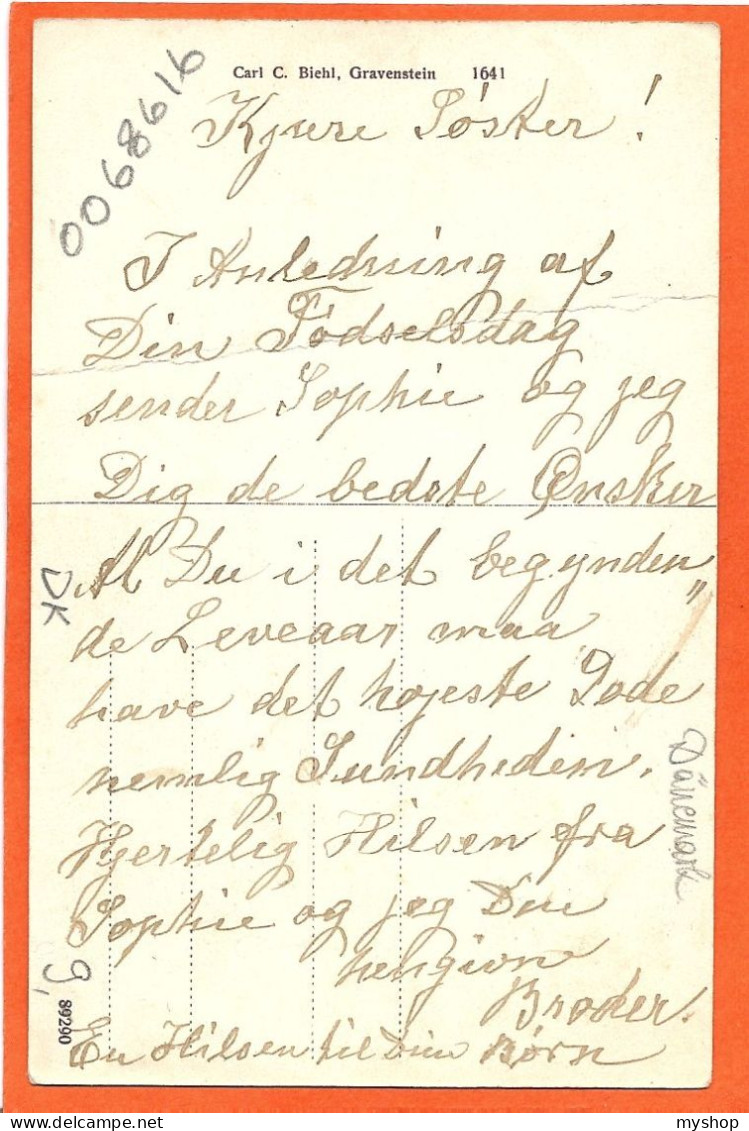 Carl C. Biehl, Gravenstein 1641
0068616
Kjære Søster!
I Anledning af
Din Fødselsdag
sender Sophie og jeg
Dig de bedste Ønsker
At Du i det begynden"
de Leveaar maa
have det højeste Gode
nemlig Sundheden.
Hjertelig Hilsen fra
Sophie og jeg Din
hengivn
Broder.
En Hilsen til Dine Børn
DK
Dänemark
9,
89290
myshop